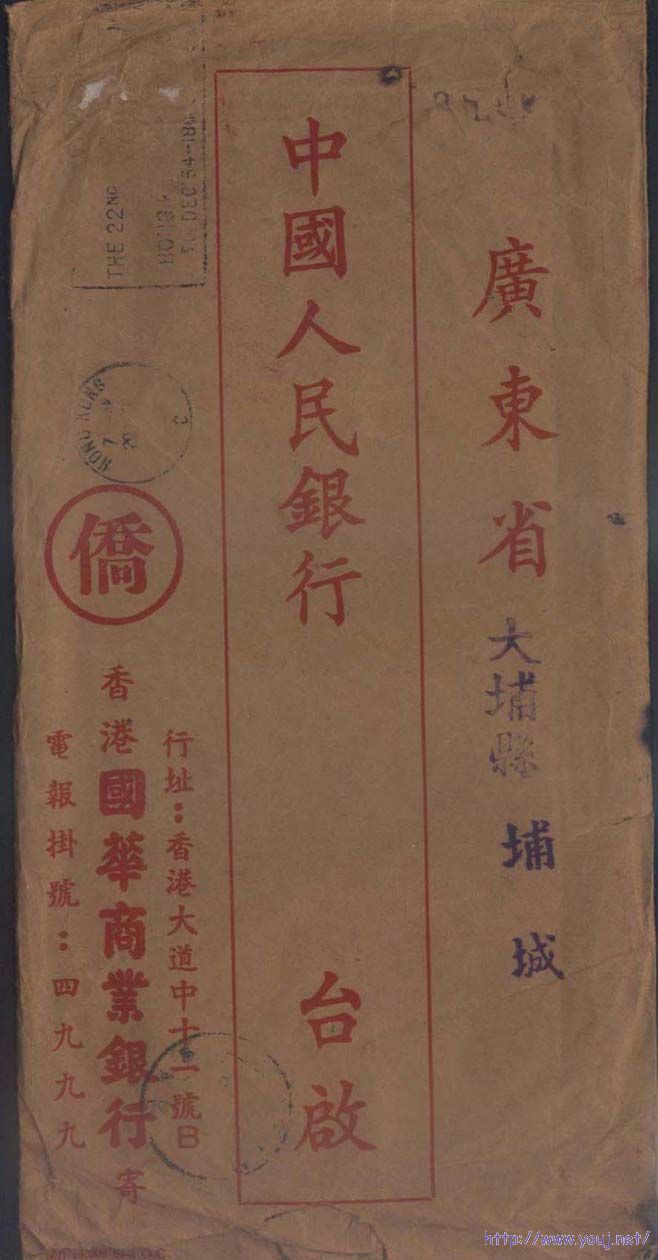 廣東省大埔縣埔城
中國人民銀行 台啟
僑
行址：香港大道中十一號B
香港國華商業銀行寄
電報掛號：四九九九
THE 22ND
HONG K
DEC'64-18
HONG KONG
7
C
http://www.youj.net/